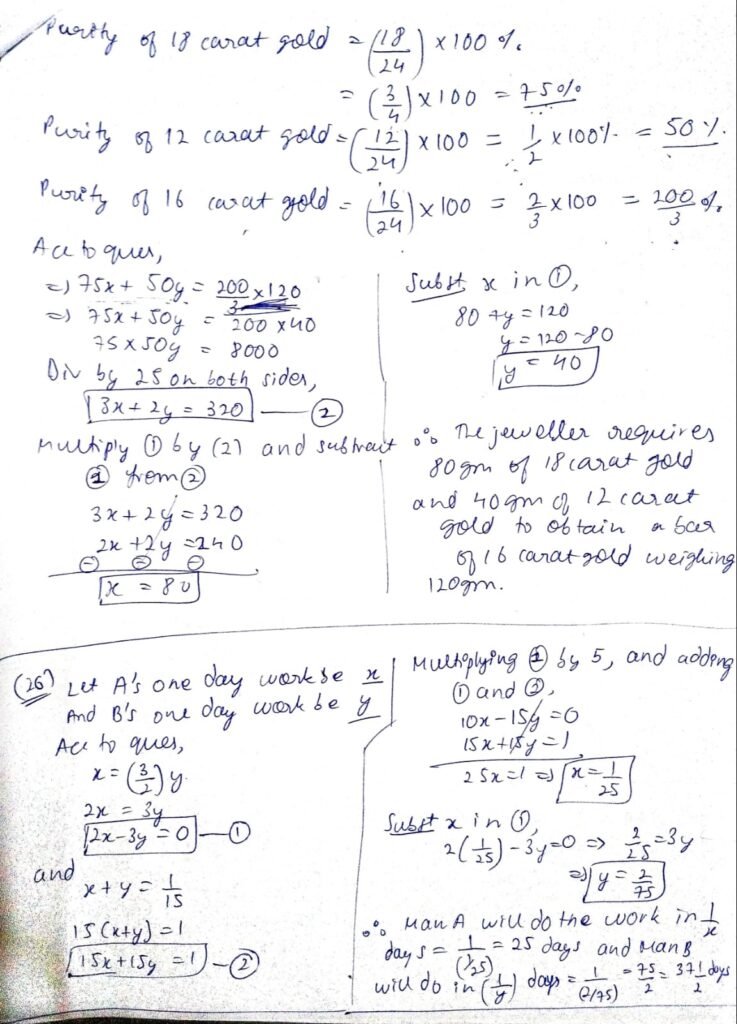 Purity of 18 carat gold = (18/24) × 100 %.
= (3/4) × 100 = 75%
Purity of 12 carat gold = (12/24) × 100 = 1/2 × 100% = 50%.
Purity of 16 carat gold = (16/24) × 100 = 2/3 × 100 = 200/3 %.
Acc to ques,
=) 75x + 50y = 200/3 × 120
=) 75x + 50y = 200 × 40
75 × 50y = 8000
Div by 25 on both sides,
3x + 2y = 320 — ②
Multiply ① by (2) and subtract
① from ②
3x + 2y = 320
2x + 2y = 240
⊖ ⊖ ⊖
x = 80
Subst x in ①,
80 + y = 120
y = 120 - 80
y = 40
∴ The jeweller requires
80gm of 18 carat gold
and 40gm of 12 carat
gold to obtain a bar
of 16 carat gold weighing
120gm.
(26) Let A's one day work be x
And B's one day work be y
Acc to ques,
x = (3/2) y.
2x = 3y
2x - 3y = 0 — ①
and
x + y = 1/15
15 (x+y) = 1
15x + 15y = 1 — ②
Multiplying ① by 5, and adding
① and ②,
10x - 15y = 0
15x + 15y = 1
25x = 1 => x = 1/25
Subst x in ①,
2(1/25) - 3y = 0 => 2/25 = 3y
=> y = 2/75
∴ Man A will do the work in 1/x
days = 1/(1/25) = 25 days and Man B
will do in (1/y) days = 1/(2/75) = 75/2 = 37 1/2 days